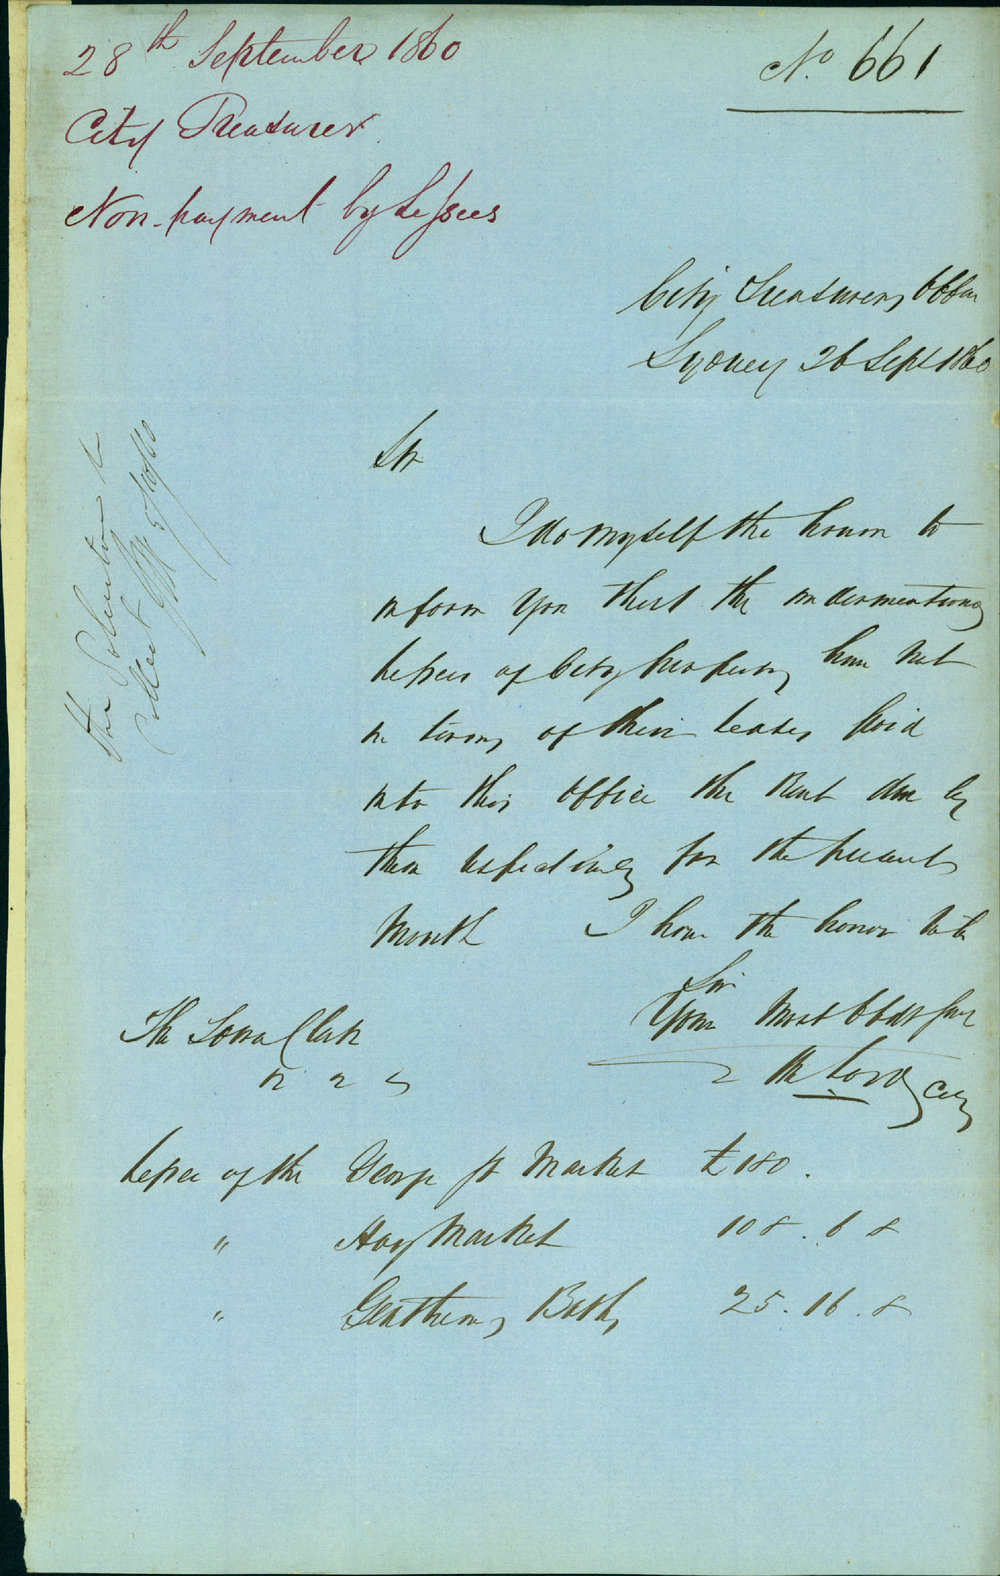 28th September 1860
No 661
City Treasurer
Non-payment by Lessees
City Treasurers Office
Sydney 26 Sept 1860
Sir
I do myself the honor to
inform you that the undermentioned
Lessees of City property have not
in terms of their leases paid
into this office the Rent due by
them respectively for the present
Month I have the honor to be
Sir
Your Most Obdt Serv
The Town Clerk
City
Lessee of the George St Market £180.
" Hay Market 108.6.8
" Gentlemens Baths 25.16.8
The Solicitor to
Collect 5/10/60